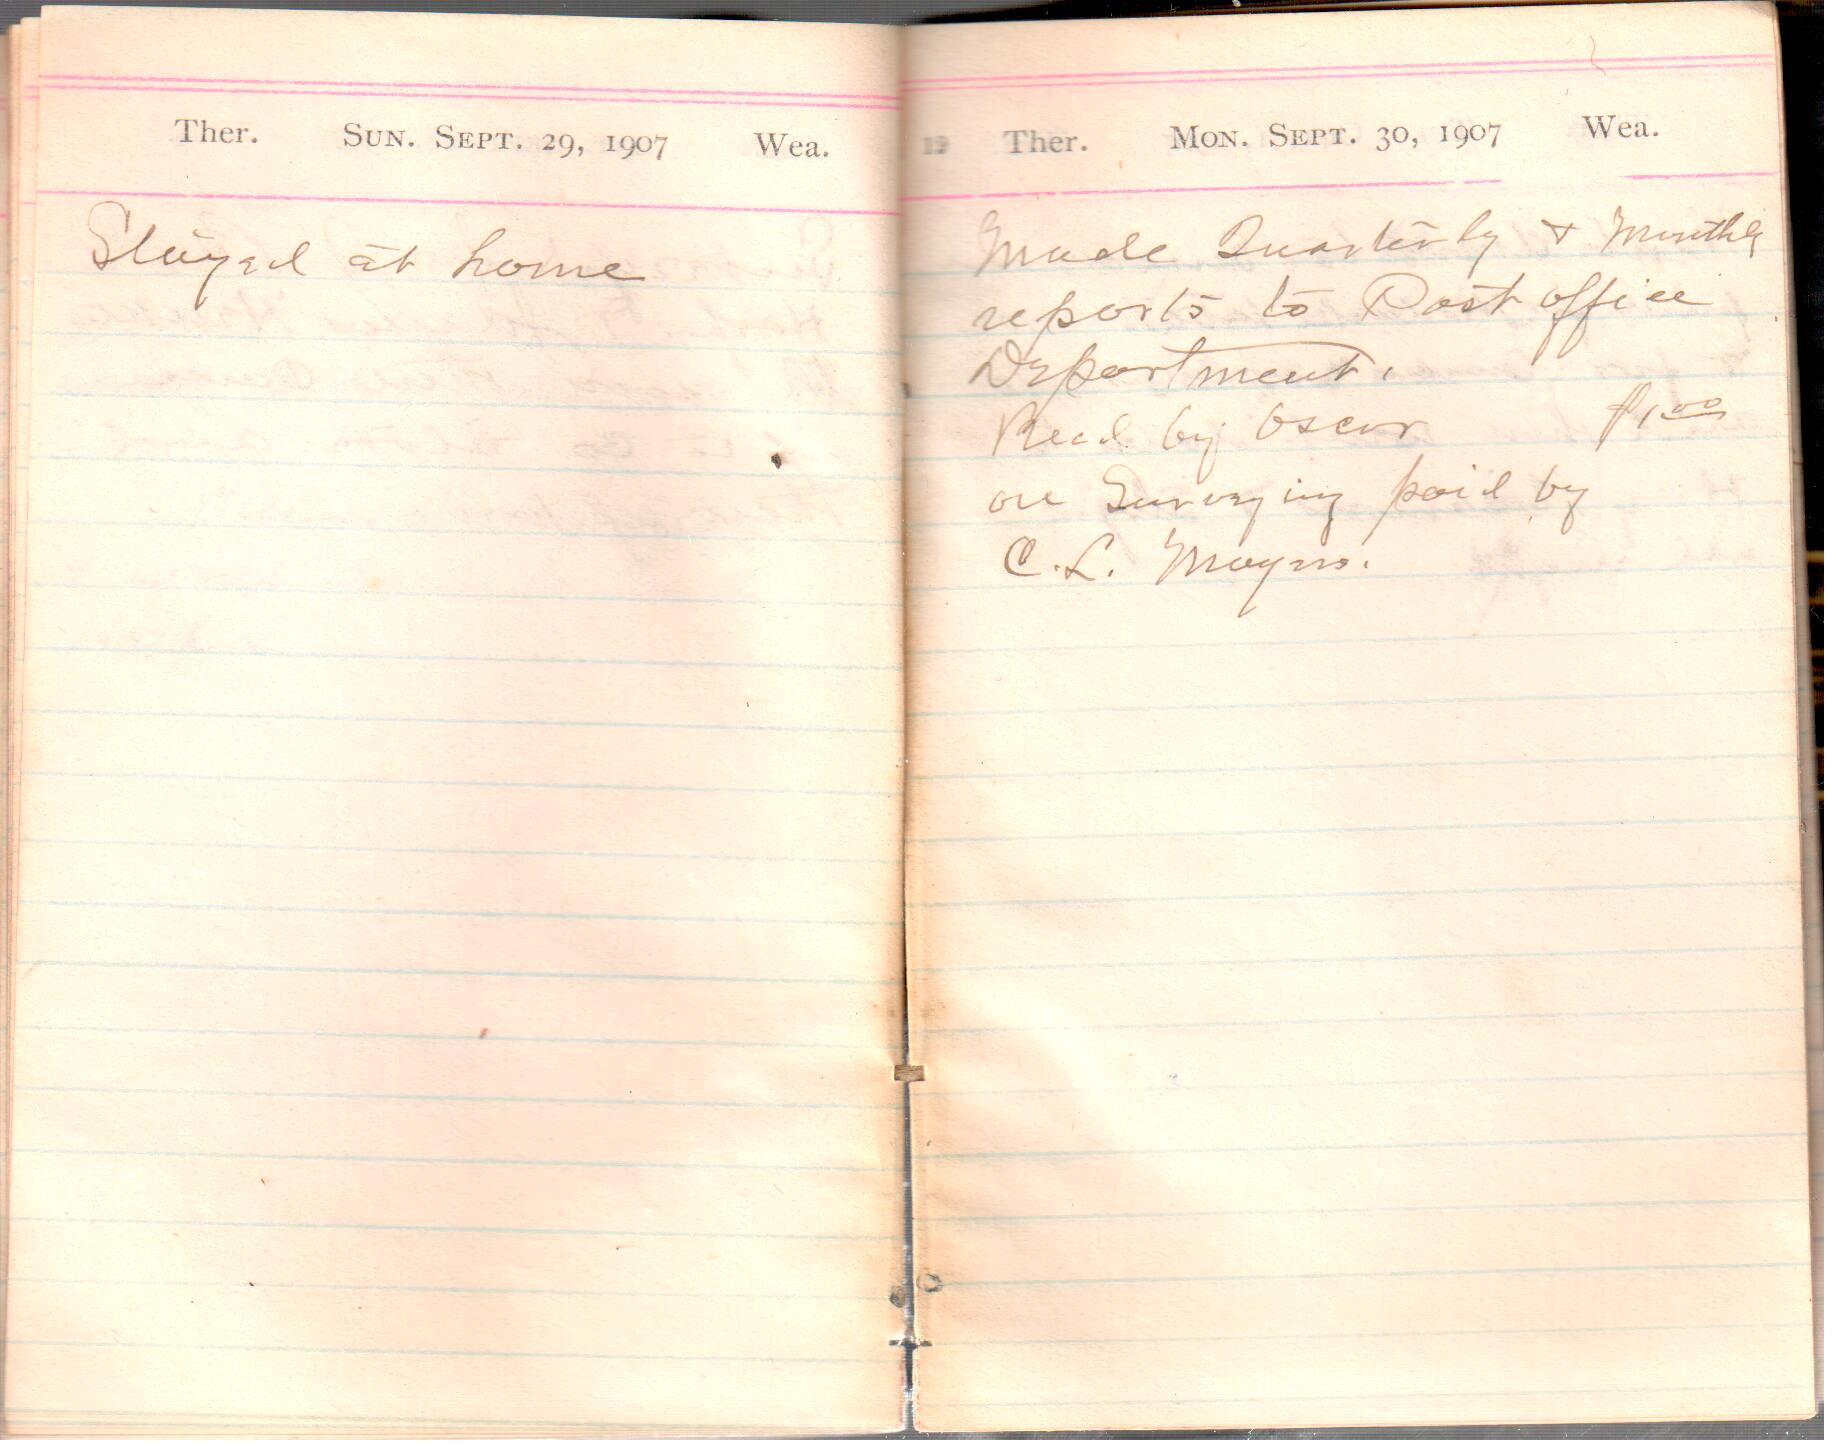 Ther. Sun. Sept. 29, 1907 Wea.
Stayed at home
19 Ther. Mon. Sept. 30, 1907 Wea.
Made Quarterly & Monthly
reports to Post office
Department.
Recd by Oscar $1.00
on Surveying paid by
C. L.